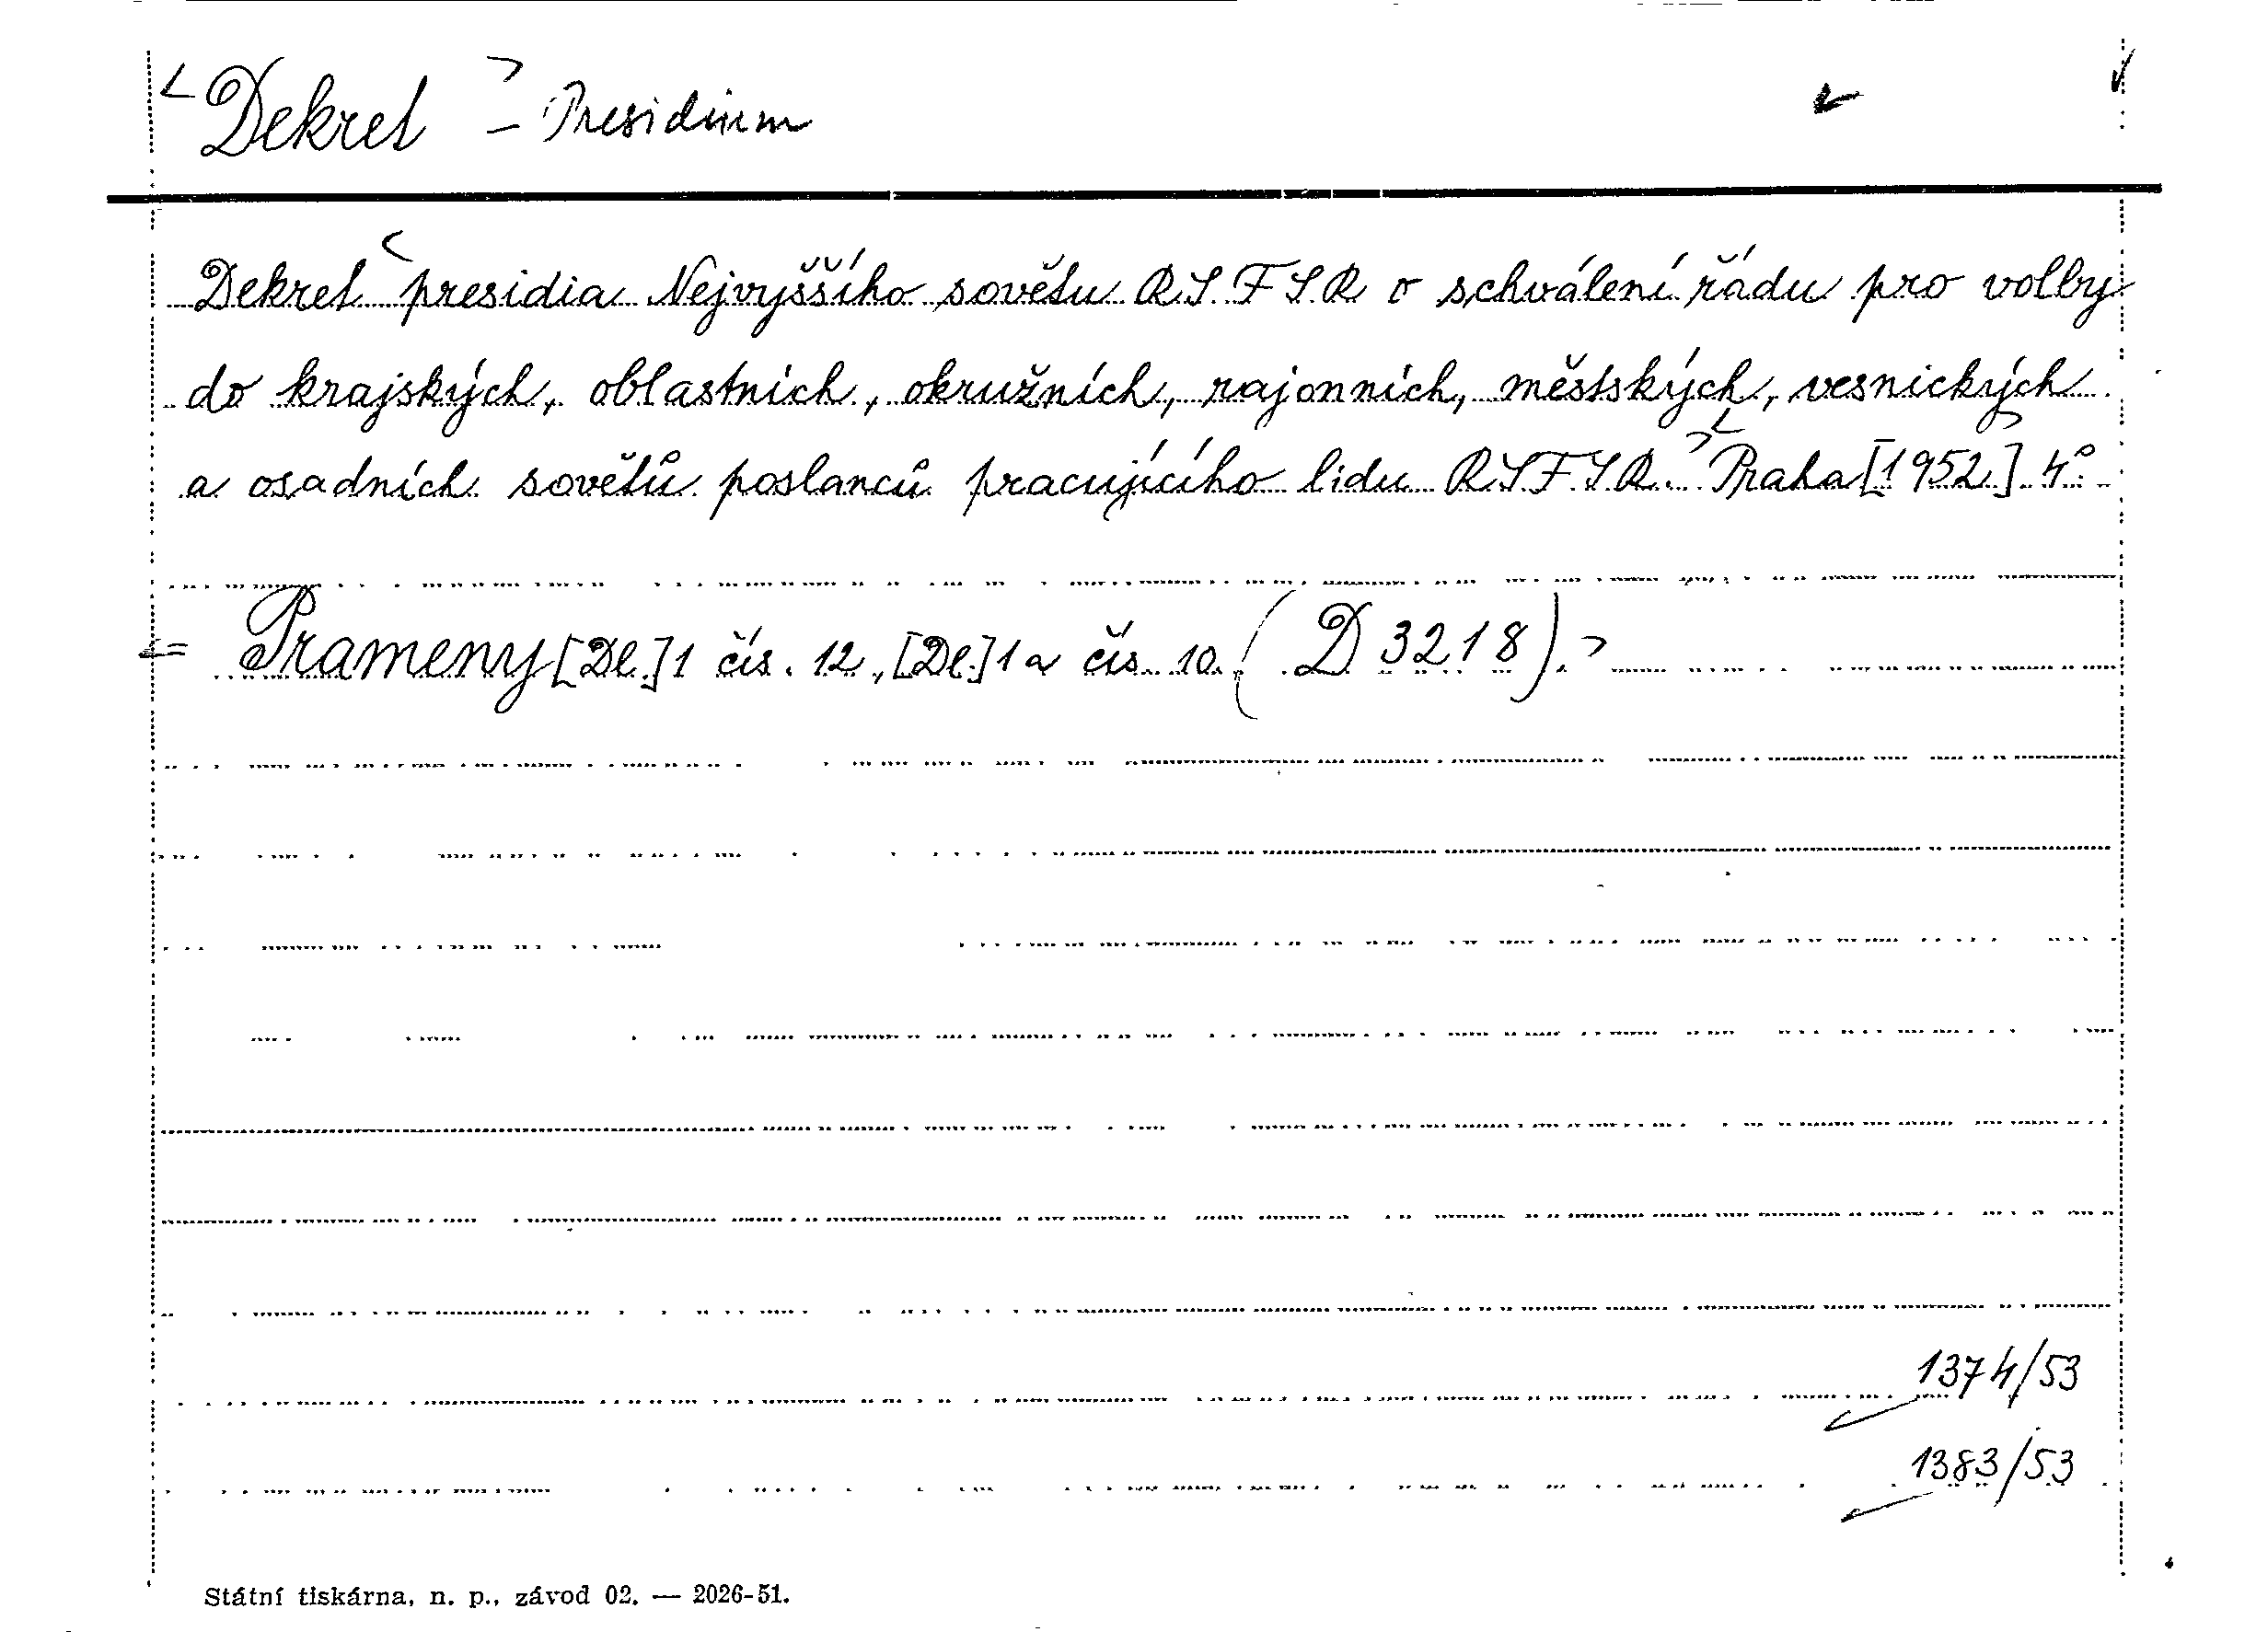 Dekret – Presidium
Dekret presidia Nejvyššího sovětu RSFSR o schválení řádu pro volby
do krajských, oblastních, okružních, rajonních, městských, vesnických
a osadních sovětů poslanců pracujícího lidu RSFSR. Praha [1952] 4°.
= Prameny [Dl.] 1 čís. 12, [Dl.] 1a čís. 10. (D 3218).
1374/53
1383/53
Státní tiskárna, n. p., závod 02. — 2026-51.